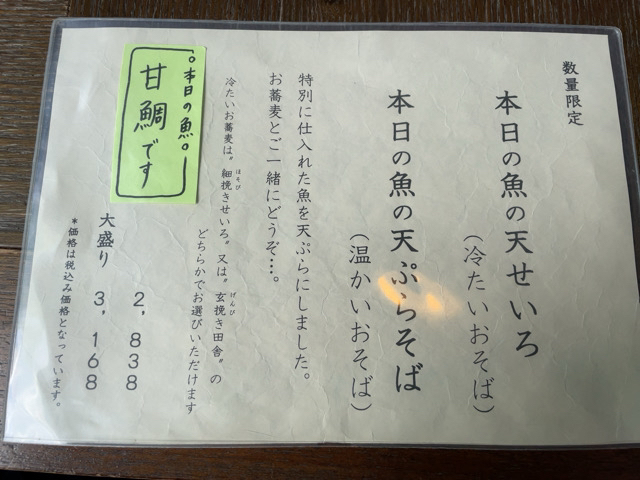 数量限定
本日の魚の天せいろ
（冷たいおそば）
本日の魚の天ぷらそば
（温かいおそば）
特別に仕入れた魚を天ぷらにしました。
お蕎麦とご一緒にどうぞ…。
冷たいお蕎麦は〝細挽きせいろ〟又は〝玄挽き田舎〟の
ほそび
げんび
どちらかでお選びいただけます
2,838
大盛り 3,168
＊価格は税込み価格となっています。
。本日の魚。
甘鯛です